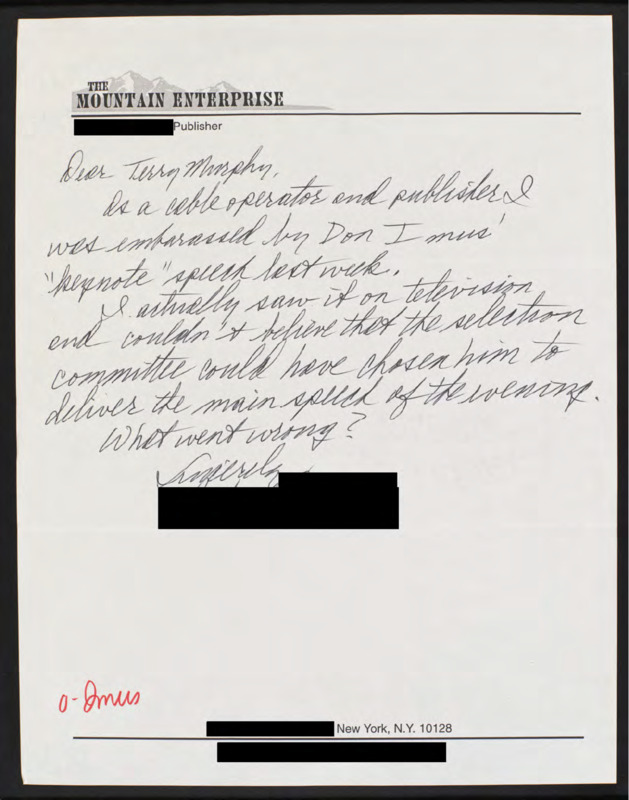 THE
MOUNTAIN ENTERPRISE
Publisher
Dear Terry Murphy,
As a cable operator and publisher I
was embarassed by Don Imus'
"keynote" speech last week.
I actually saw it on television
and couldn't believe that the selection
committee could have chosen him to
deliver the main speech of the evening.
What went wrong?
Sincerely
O-Imus
New York, N.Y. 10128